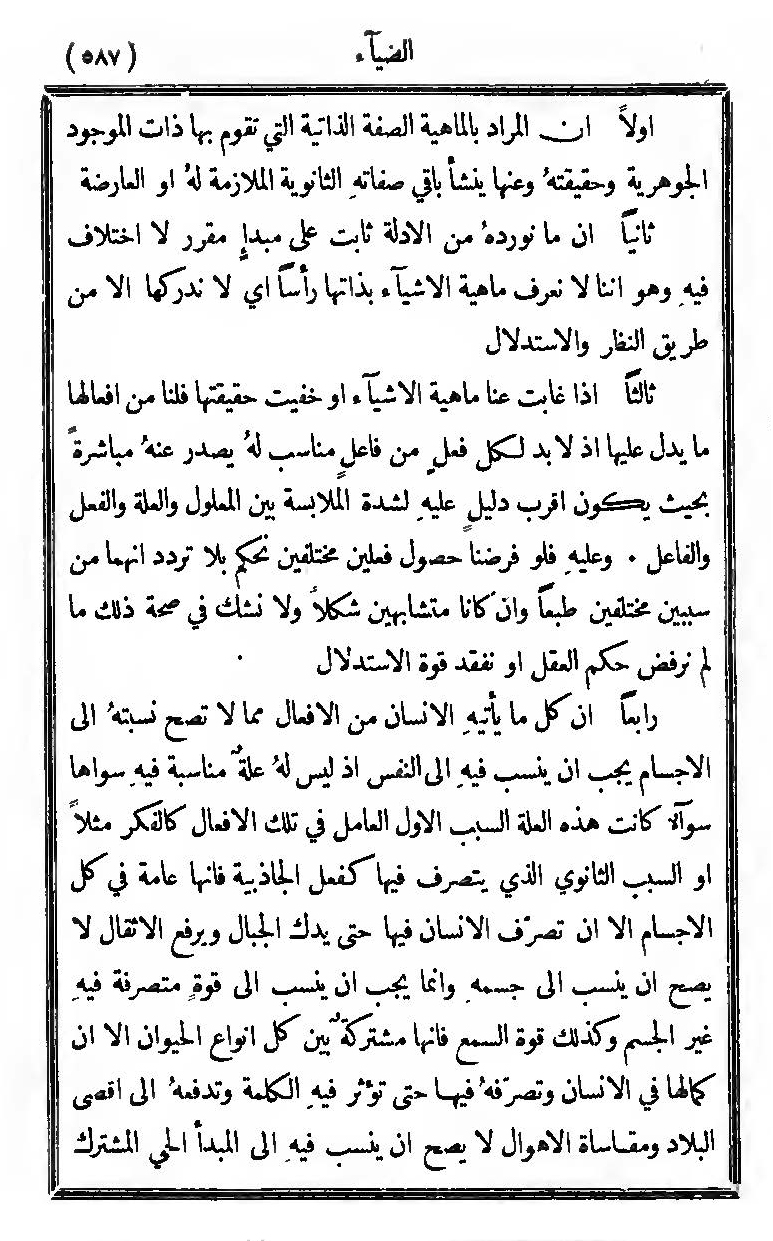 الضيآء
(٥٨٧)
اولاً ان المراد بالماهية الصفة الذاتية التي تقوم بها ذات الموجود
الجوهرية وحقيقتهُ وعنها ينشأ باقي صفاتهِ الثانوية الملازمة لهُ او العارضة
ثانياً ان ما نوردهُ من الادلة ثابت على مبدإٍ مقرر لا اختلاف
فيهِ وهو اننا لا نعرف ماهية الاشيآء بذاتها رأساً اي لا ندركها الا من
طريق النظار والاستدلال
ثالثاً اذا غابت عنا ماهية الاشيآء او خفيت حقيقتها فلنا من افعالها
ما يدل عليها اذ لا بد لكل فعلٍ من فاعلٍ مناسب لهُ يصدر عنهُ مباشرةً
بحيث يكون اقرب دليلٍ عليهِ لشدة الملابسة بين المعلول والعلة والفعل
والفاعل ٠ وعليهِ فلو فرضنا حصول فعلين مختلفين نحكم بلا تردد انهما من
سببين مختلفين طبعاً وان كانا متشابهين شكلاً ولا نشك في صحة ذلك ما
لم نرفض حكم العقل او نفقد قوة الاستدلال
رابعاً ان كل ما يأتيهِ الانسان من الافعال مما لا تصح نسبتهُ الى
الاجسام يجب ان ينسب فيهِ الى النفس اذ ليس لهُ علةٌ مناسبة فيهِ سواها
سوآء كانت هذه العلة السبب الاول العامل في تلك الافعال كالفكر مثلاً
او السبب الثانوي الذي يتصرف فيها كفعل الجاذبية فانها عامة في كل
الاجسام الا ان تصرّف الانسان فيها حتى يدك الجبال ويرفع الاثقال لا
يصح ان ينسب الى جسمهِ وانما يجب ان ينسب الى قوةٍ متصرفة فيهِ
غير الجسم وكذلك قوة السمع فانها مشتركةٌ بين كل انواع الحيوان الا ان
كمالها في الانسان وتصرّفهُ فيها حتى تؤثر فيهِ الكلمة وتدفعهُ الى اقصى
البلاد ومقاساة الاهوال لا يصح ان ينسب فيهِ الى المبدأ الحي المشترك